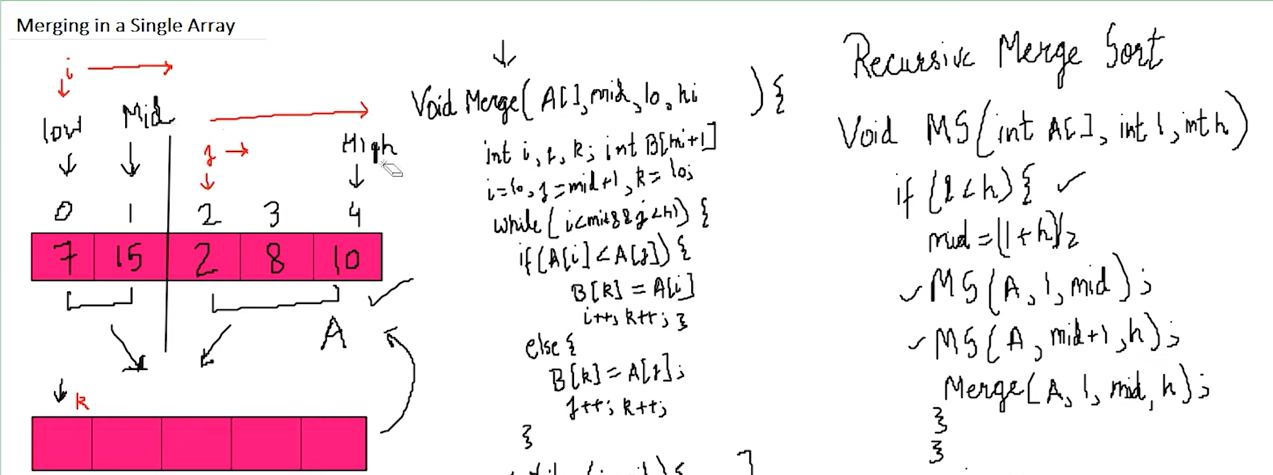 Merging in a Single Array
i
low Mid
j
High
0 1 2 3 4
7 15 2 8 10
A
k
Void Merge( A[], mid, lo, hi ) {
int i, j, k; int B[hi+1]
i=lo, j=mid+1, k=lo;
while( i<mid && j<hi) {
if(A[i] <A[j]) {
B[k] = A[i]
i++, k++; }
else {
B[k] = A[j];
j++; k++;
}
Recursive Merge Sort
Void MS(int A[], int l, int h)
if (l<h) {
mid=(l+h)/2
MS(A, l, mid);
MS(A, mid+1, h);
Merge(A, l, mid, h);
}
}